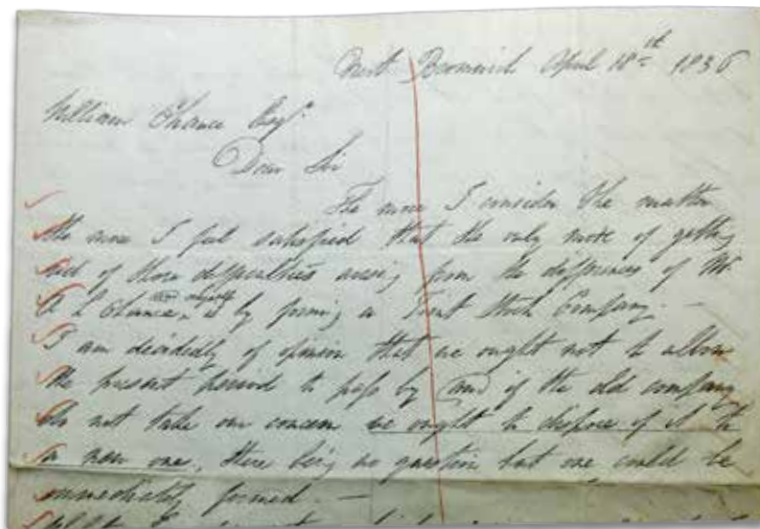 West Bromwich April 18th 1836
William Chance Esqr.
Dear Sir
The more I consider the matter
the more I feel satisfied that the only mode of getting
rid of those difficulties arising from the differences of Mr
L Chance and myself is by forming a Joint Stock Company. —
I am decidedly of opinion that we ought not to allow
the present period to pass by and if the old company
do not take our concern we ought to dispose of it to
a new one, there being no question but one could be
immediately formed. —